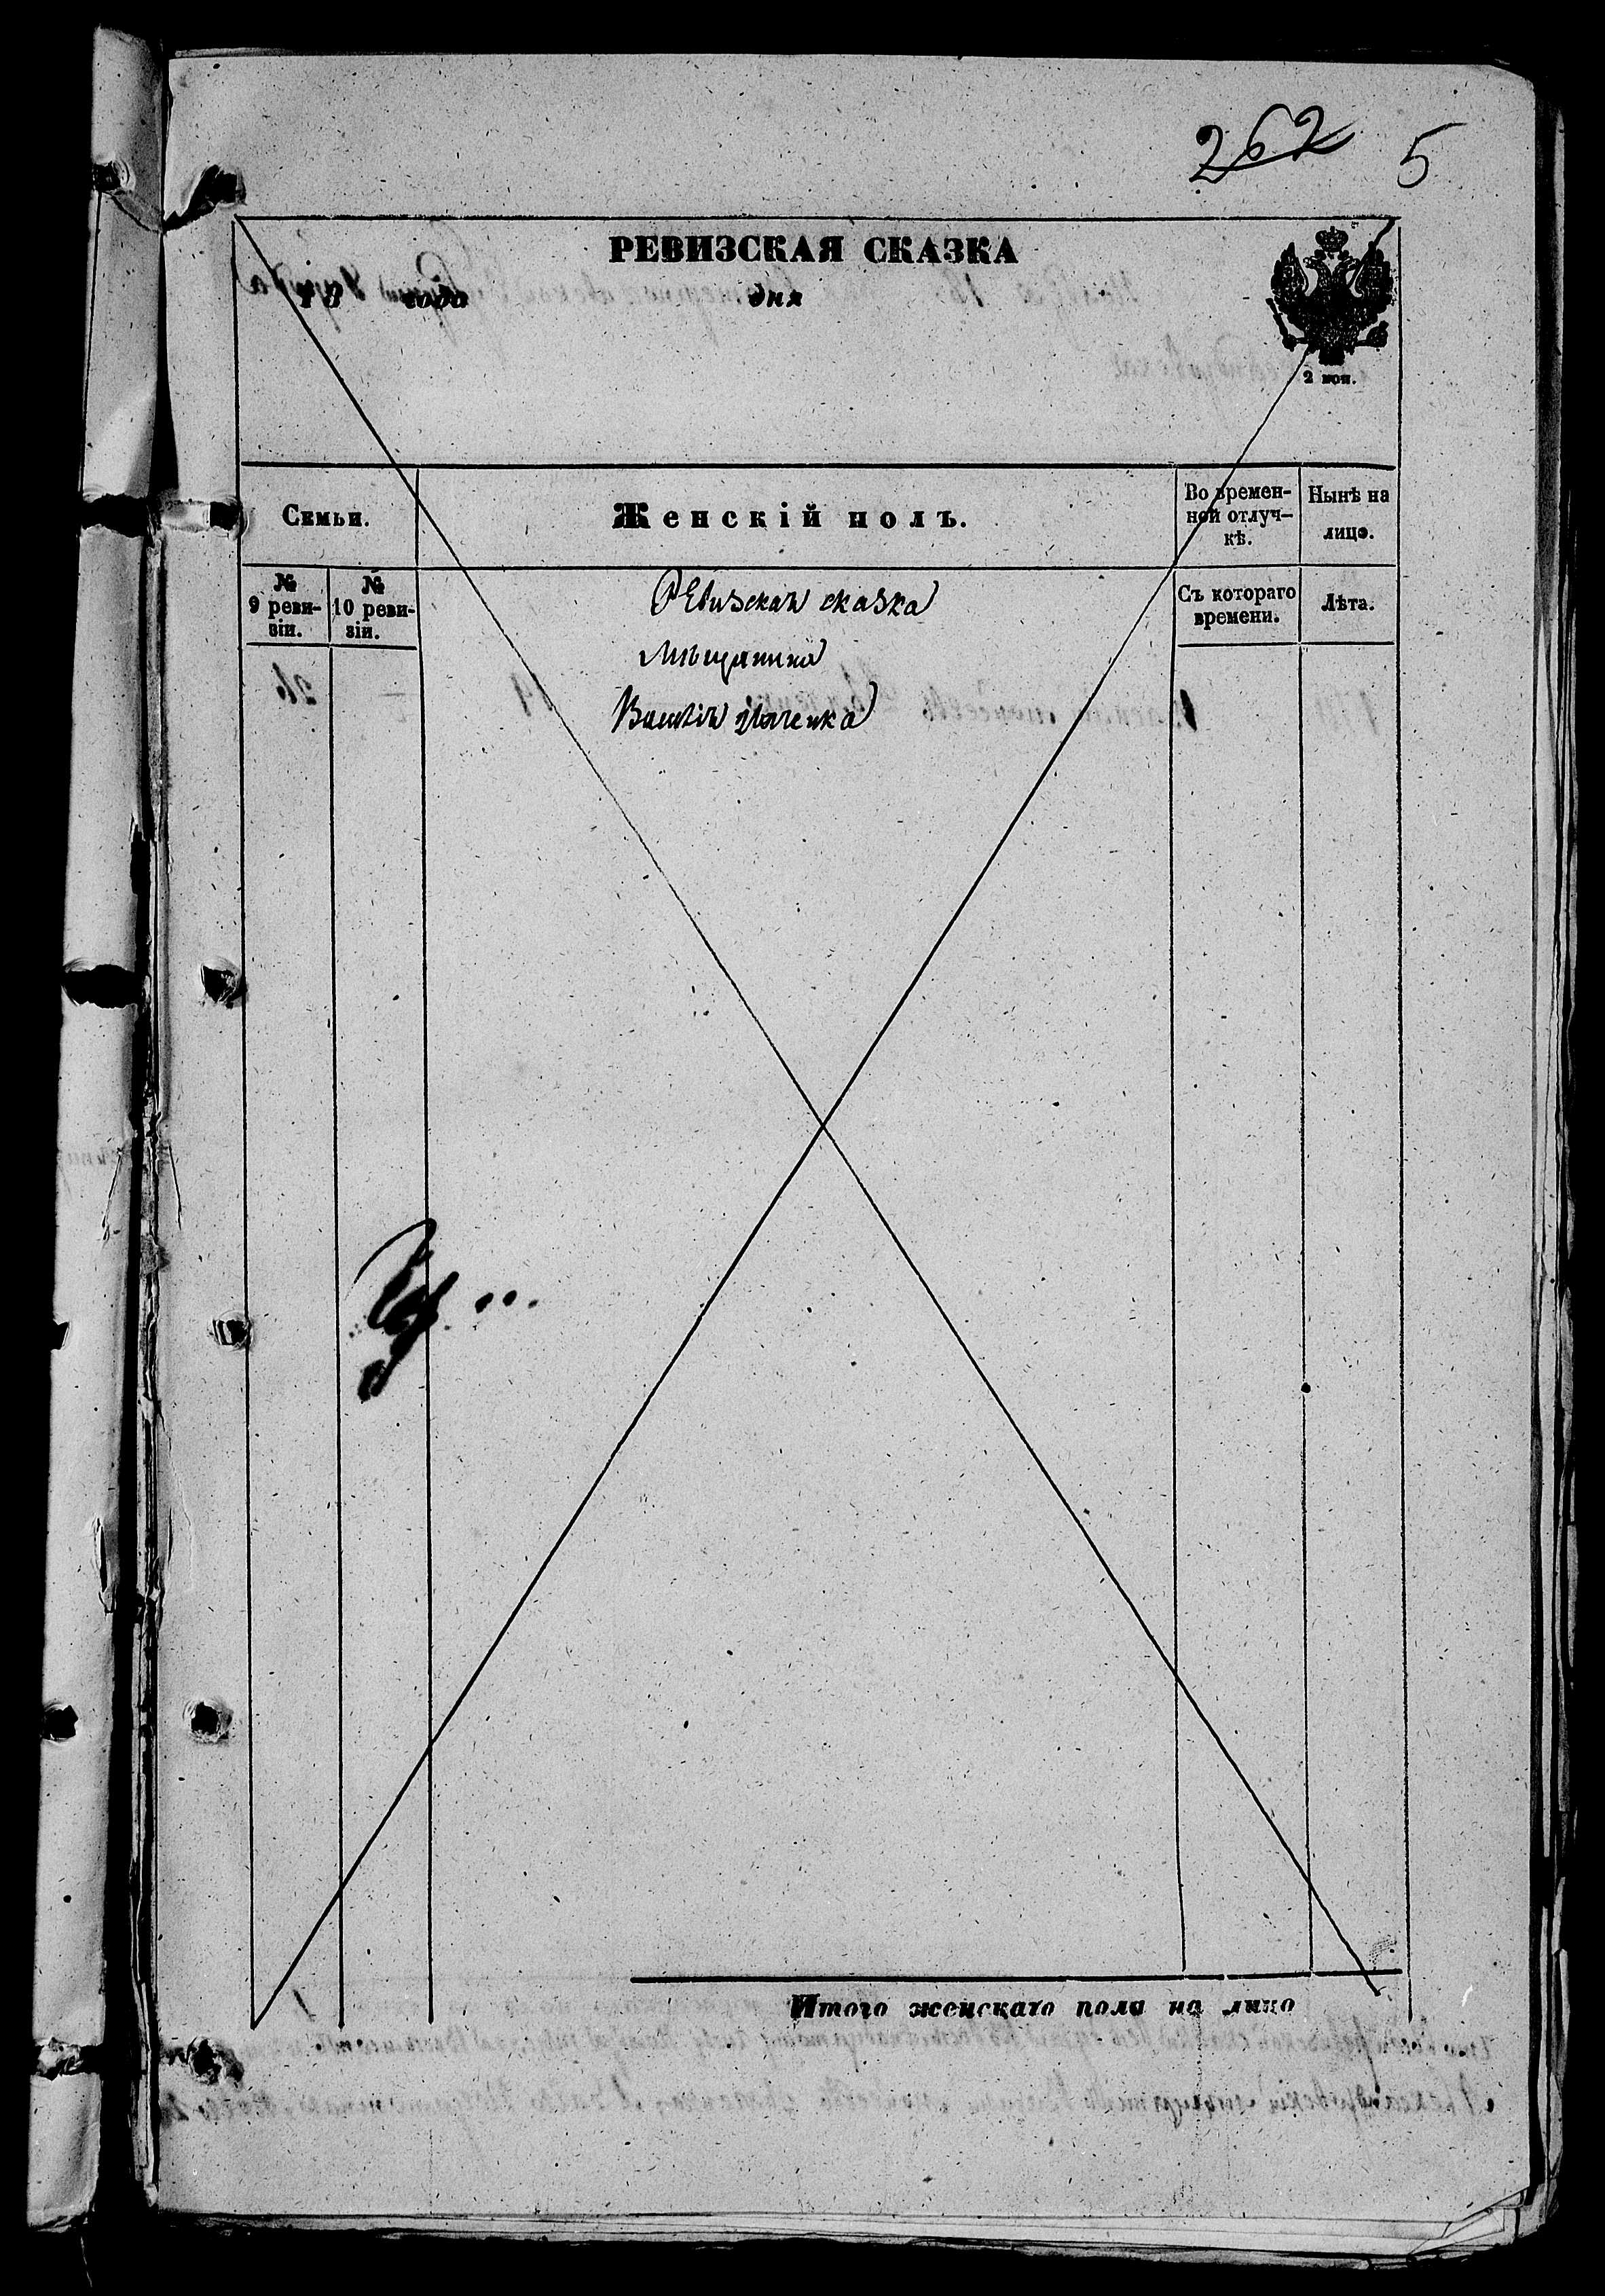 262 5
РЕВИЗСКАЯ СКАЗКА
18 года дня
2 коп.
Семьи.
Женскій полъ.
Во времен-
ной отлуч-
кѣ.
Нынѣ на
лицо.
№
9 реви-
зіи.
№
10 реви-
зіи.
Съ котораго
времени.
Лѣта.
Ревизская сказка
мѣщанина
Итого женскаго пола на лицо